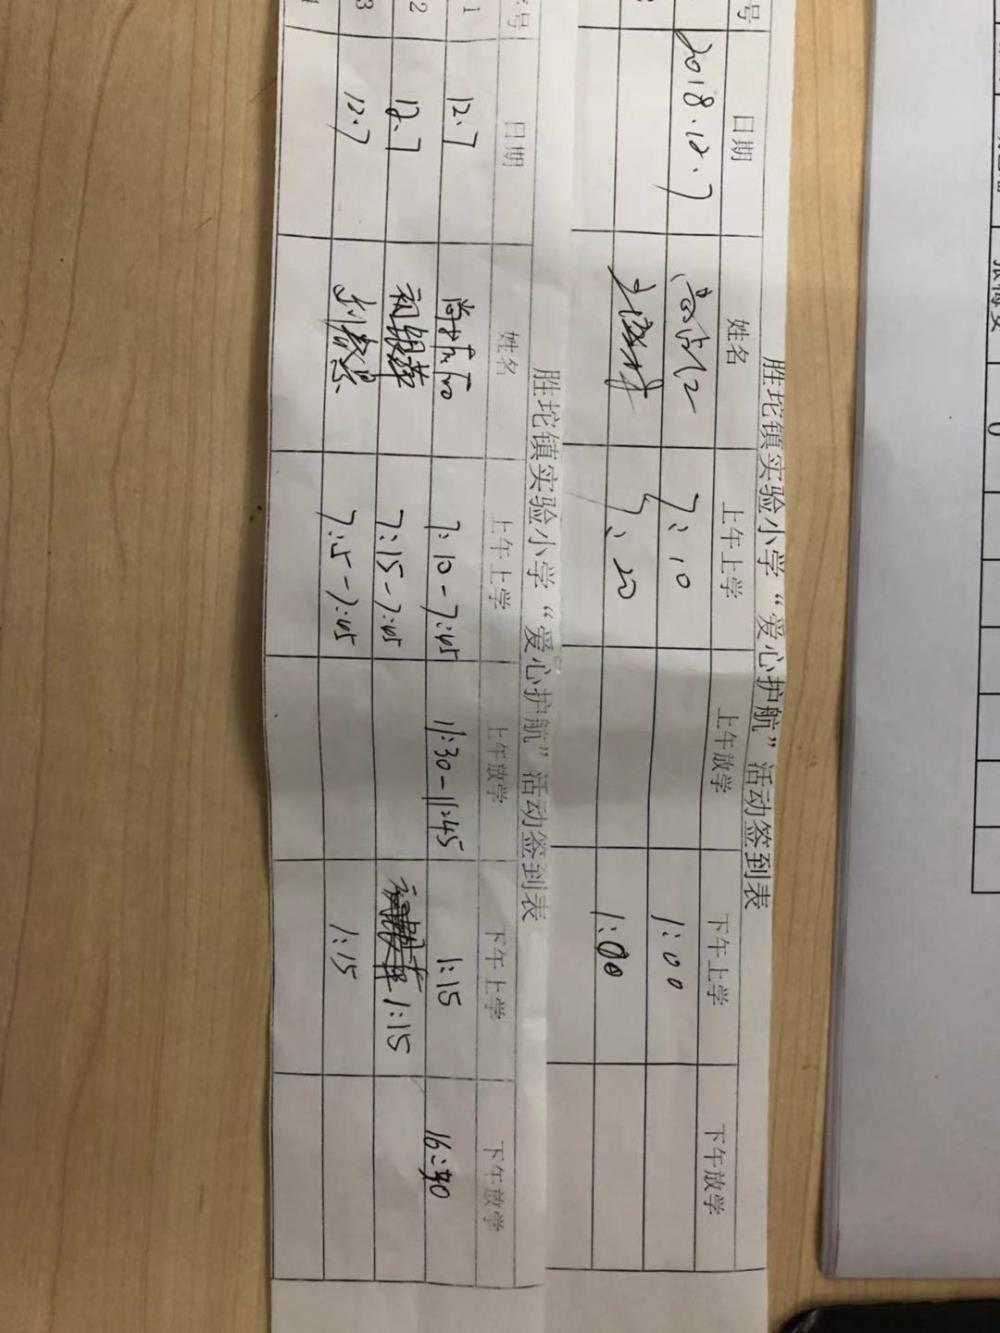 胜坨镇实验小学“爱心护航”活动签到表
号 日期 姓名 上午上学 上午放学 下午上学 下午放学
2018.12.7 7:10 1:00
7:20 1:00
胜坨镇实验小学“爱心护航”活动签到表
序号 日期 姓名 上午上学 上午放学 下午上学 下午放学
1 12.7 7:10-7:45 11:30-11:45 1:15 16:30
2 12.7 7:15-7:45 1:15
3 12.7 7:15-7:45 1:15